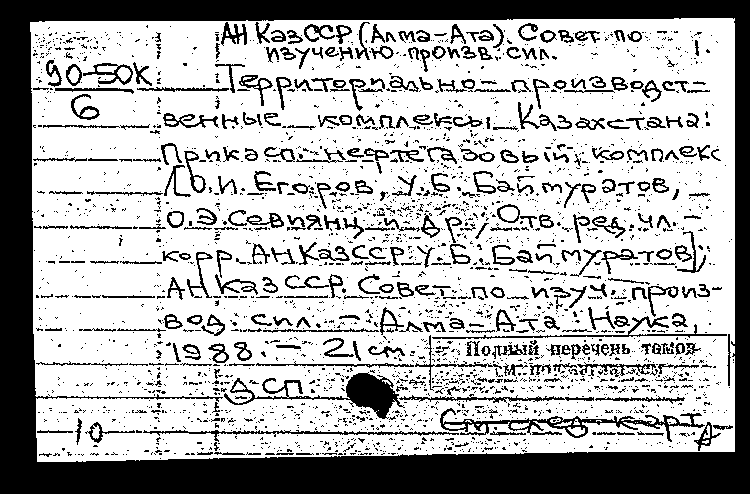 АН КазССР (Алма-Ата). Совет по
изучению произв. сил.
1.
90-50К
6
Территориально-производст-
венные комплексы Казахстана:
Прикасп. нефтегазовый комплекс
/[О.И. Егоров, У.Б. Баймуратов,
О.Э. Севиянц и др.; Отв. ред. чл.-
корр. АН КазССР У.Б. Баймуратов];
АН КазССР. Совет по изуч. произ-
вод. сил. – Алма-Ата: Наука,
1988. – 21 см.
Полный перечень томов
см. под заглавием
ДСП.
См. след. карт.
10